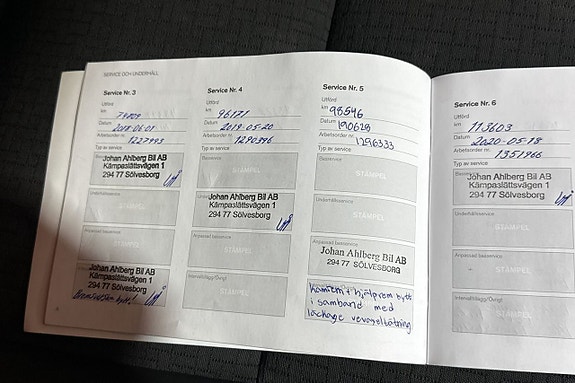 SERVICE OCH UNDERHÅLL
Service Nr. 3
Utförd
km
Datum 2018-06-01
Arbetsorder nr. 1227993
Typ av service
Johan Ahlberg Bil AB
Kämpaslättsvägen 1
294 77 Sölvesborg
Underhållsservice
STÄMPEL
Anpassad basservice
STÄMPEL
Johan Ahlberg Bil AB
Kämpaslättsvägen 1
294 77 Sölvesborg
Service Nr. 4
Utförd
km 96171
Datum 2019-05-20
Arbetsorder nr. 1290396
Typ av service
Basservice
STÄMPEL
Johan Ahlberg Bil AB
Kämpaslättsvägen 1
294 77 Sölvesborg
Anpassad basservice
STÄMPEL
Intervalltillägg/Övrigt
STÄMPEL
Service Nr. 5
Utförd
km 98546
Datum 190628
Arbetsorder nr. 1296333
Typ av service
Basservice
STÄMPEL
Underhållsservice
STÄMPEL
Anpassad basservice
Johan Ahlberg Bil AB
294 77 SÖLVESBORG
kamrem + hjälprem bytt
i samband med
läckage vevaxeltätning
Service Nr. 6
Utförd
km 113603
Datum 2020-05-18
Arbetsorder nr. 1351966
Typ av service
Johan Ahlberg Bil AB
Kämpaslättsvägen 1
294 77 Sölvesborg
Underhållsservice
STÄMPEL
Anpassad basservice
STÄMPEL
Intervalltillägg/Övrigt
STÄMPEL